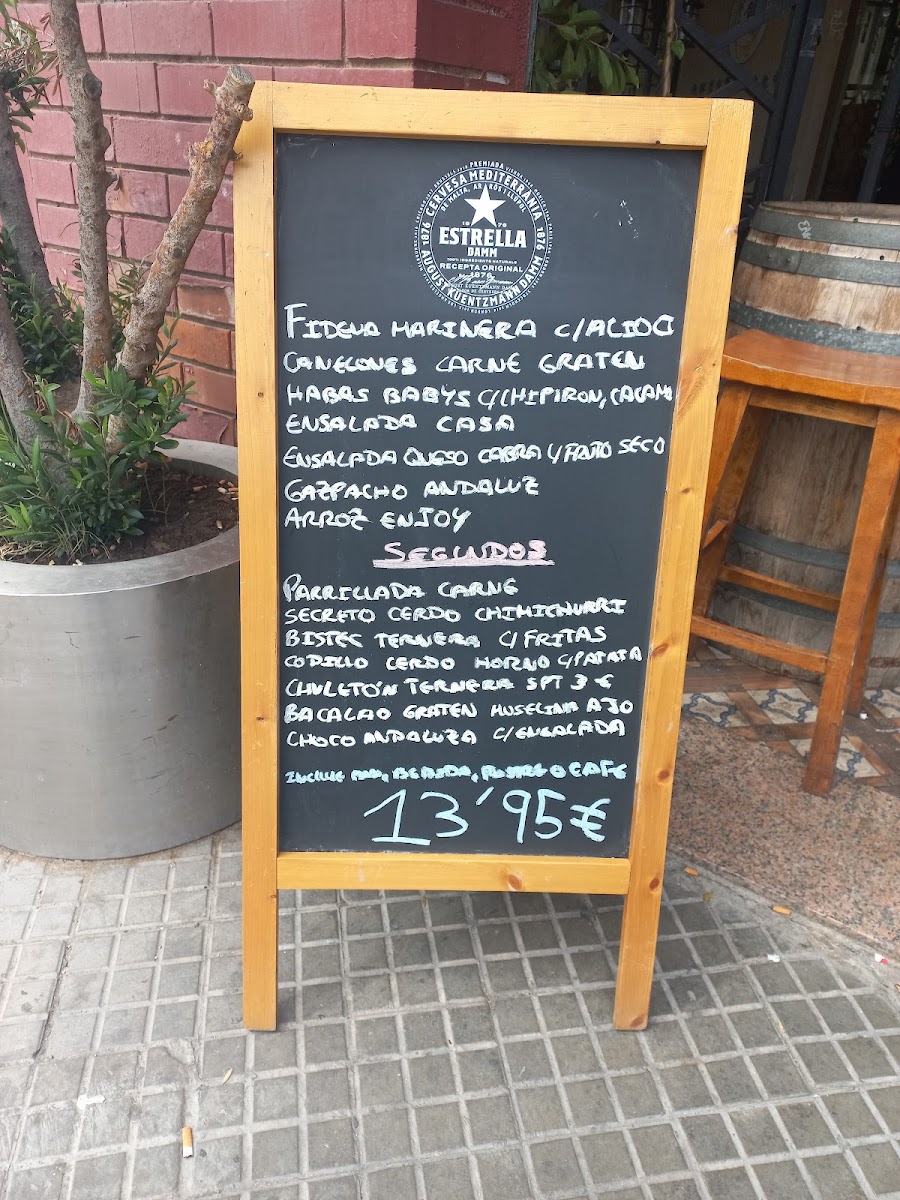 PREMIADA
CERVESA MEDITERRÀNIA
DE MALTA, ARRÒS I LLÚPOL
1876
ESTRELLA
DAMM
100% INGREDIENTS NATURALS
RECEPTA ORIGINAL
1876
1876 AUGUST KUENTZMANN DAMM 1876
FIDEUA MARINERA C/ALIOO
CANELONES CARNE GRATEN
HABAS BABYS C/CHIPIRON, CALAM
ENSALADA CASA
ENSALADA QUESO CABRA Y FRUTO SECO
GAZPACHO ANDALUZ
ARROZ ENJOY
SEGUNDOS
PARRILLADA CARNE
SECRETO CERDO CHIMICHURRI
BISTEC TERNERA C/FRITAS
CODILLO CERDO HORNO C/PATATA
CHULETÓN TERNERA SPT 3 €
BACALAO GRATEN MUSELINA AJO
CHOCO ANDALUZA C/ENSALADA
INCLUE PAN, BEBIDA, POSTRE O CAFE
13'95€